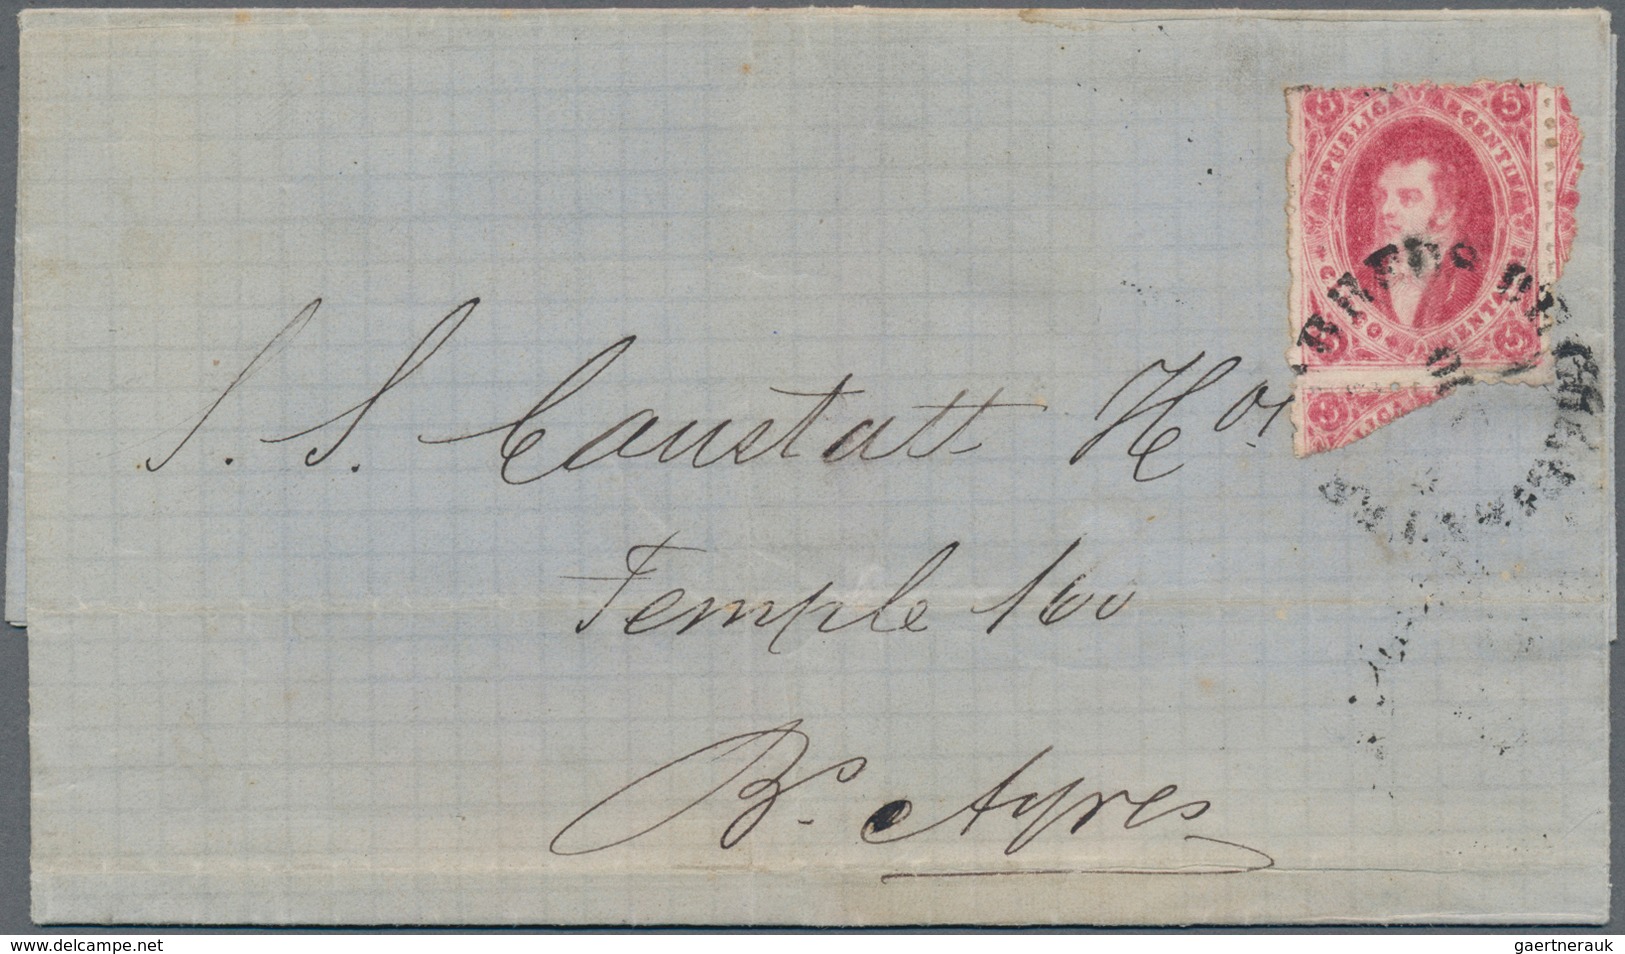 5 REPUBLICA ARGENTINA 5
5 CINCO CENTAVOS 5
5
S. S. Constatt Hos
Temple 100
Bs. Ayres
www.delcampe.net
gaertnerauk